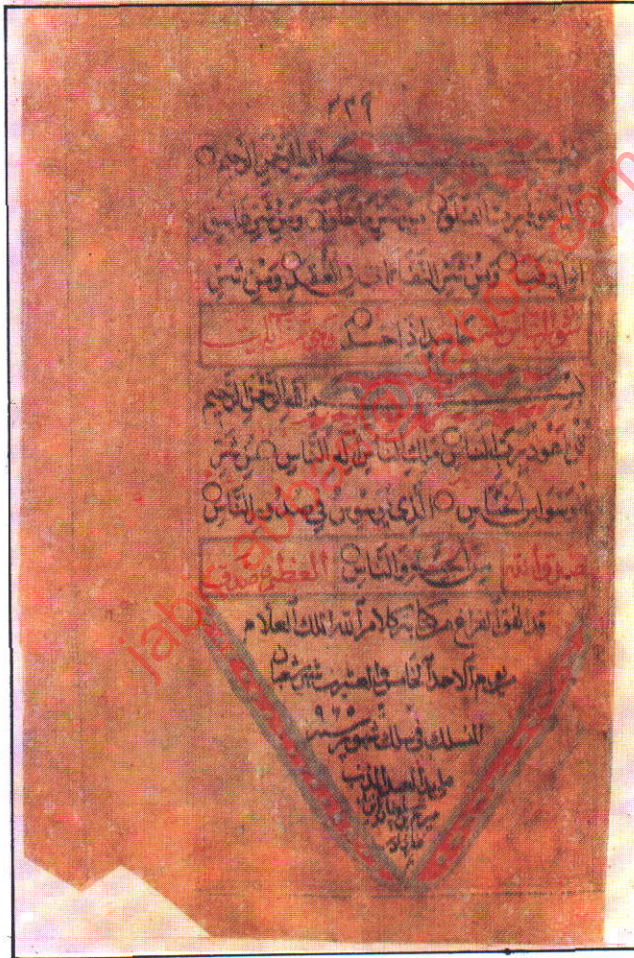 ٣٢٩
بسم الله الرحمن الرحيم
قل اعوذ برب الفلق من شر ما خلق ومن شر غاسق
اذا وقب ومن شر النفاثات في العقد ومن شر
سورة الناس حاسد اذا حسد
بسم الله الرحمن الرحيم
قل اعوذ برب الناس ملك الناس اله الناس من شر
الوسواس الخناس الذي يوسوس في صدور الناس
صدق الله من الجنة والناس العظيم وصدق
قد اتفق الفراغ من كتابة كلام الله الملك العلام
في يوم الاحد الخامس والعشرين شهر شعبان
المنسلك في سلك شهور سنة ٩٦٥
على يد العبد المذنب
jabir.abbas@yahoo.com